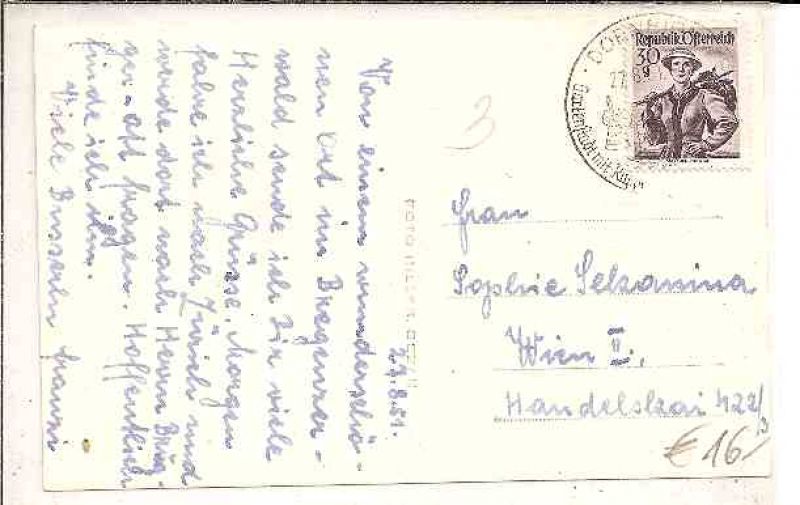 23.8.51.
Von einem wunderschö-
nen Ort im Bregenzer-
wald sende ich Dir viele
Herzliche Grüsse. Morgen
fahre ich nach Zürich und
werde dort nach Herrn
ger oft fragen. Hoffentlich
finde ich ihn.
Viele Busserln Franzi
3
FOTO
DORNBIRN
Gartenstadt mit
Republik Österreich
30
Frau
Sophie Selzanina
Wien II.
Handelskai 422/3
€ 16,-